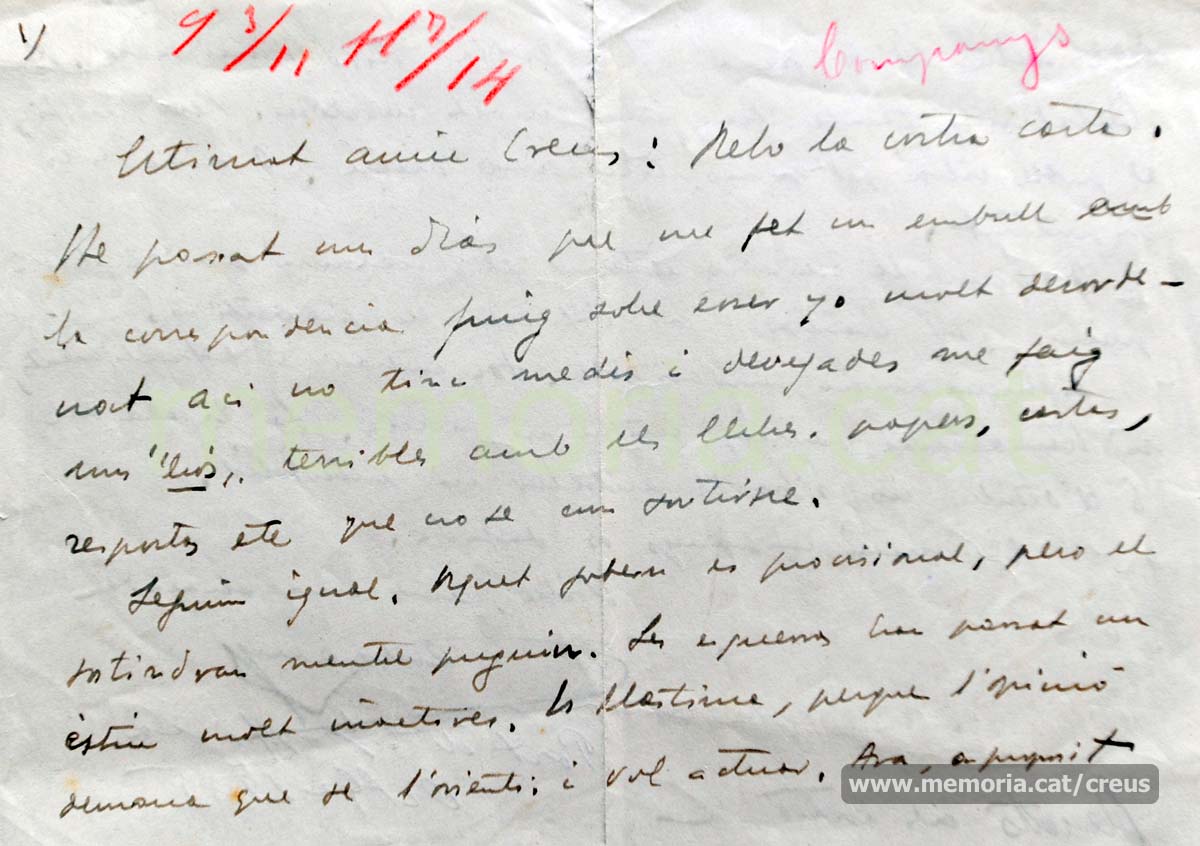 1/
9 3/11 H 7/14
Companys
Estimat amic Creus: Rebo la vostra carta.
He passat uns dias que me fet un embull amb
la correspondencia puig sobre esser yo molt desorde-
nat aci no tinc medis i devegades me faig
uns "lios", terribles amb els llibres, papers, cartes,
respostes etc que no se com sortirne.
Seguim igual. Aquet gobern es provisional, pero el
sostindran mentre puguin. Les esquerres han passat un
èstiu molt inactives. Es llastima, perque l'opinió
demana que se l'orienti i vol actuar. Ara, a proposit
memoria.cat
www.memoria.cat/creus